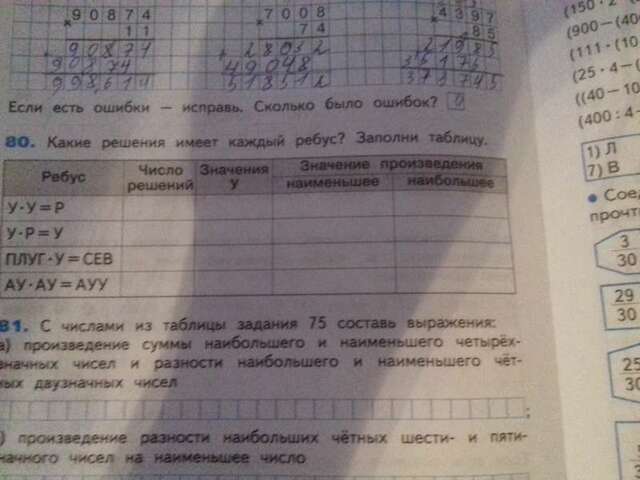 90874
×
11
+ 90874
90874
998614
7008
×
74
+ 28032
49048
518512
4397
×
85
+ 21985
35176
373745
(150 · 2
(900 — (40
(111 · (10
(25 · 4 — (
((40 — 10
(400 : 4 —
Если есть ошибки — исправь. Сколько было ошибок?
80. Какие решения имеет каждый ребус? Заполни таблицу.
Ребус Число решений Значения У Значение произведения
наименьшее наибольшее
У · У = Р
У · Р = У
ПЛУГ · У = СЕВ
АУ · АУ = АУУ
81. С числами из таблицы задания 75 составь выражения:
а) произведение суммы наибольшего и наименьшего четырёх-
значных чисел и разности наибольшего и наименьшего чёт-
ных двузначных чисел
;
) произведение разности наибольших чётных шести- и пяти-
значного чисел на наименьшее число
1) Л
7) В
• Соед
прочт
3
30
29
30
25
30